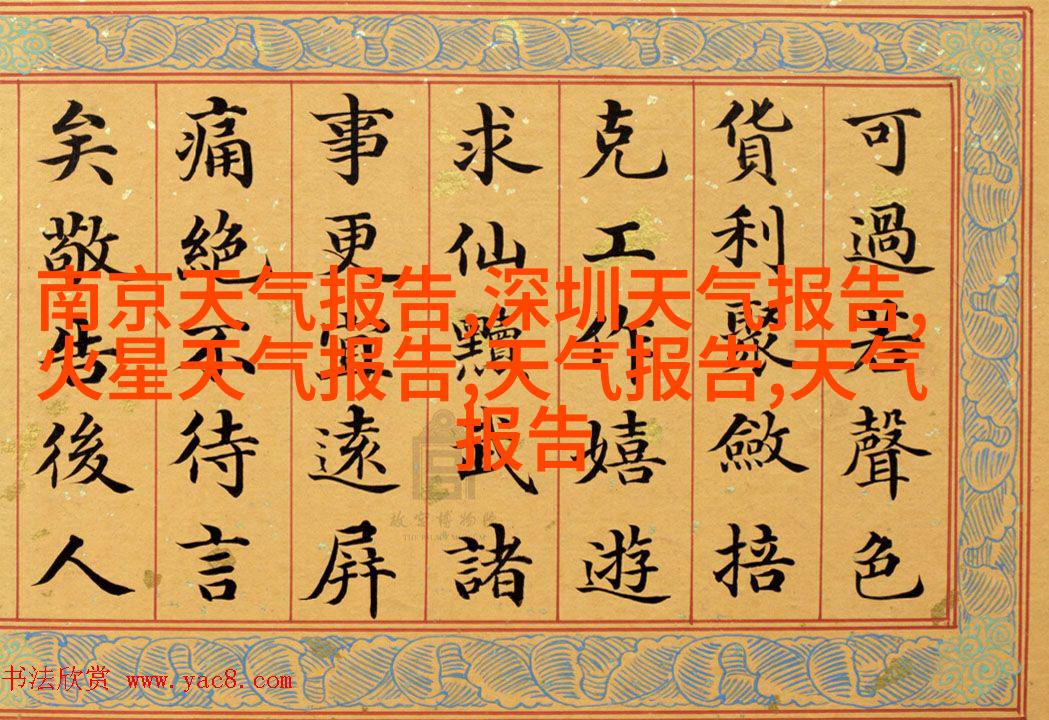 可過若聲色
貨利聚斂掊
克工作嬉遊
求仙黷武諸
事更宜遠屏
痛絕不待言
矣敬告後人
南京天气报告,深圳天气报告,
火星天气报告,天气报告,天气
报告
故宫博物院
THE PALACE MUSEUM
书法欣赏 www.yac8.com